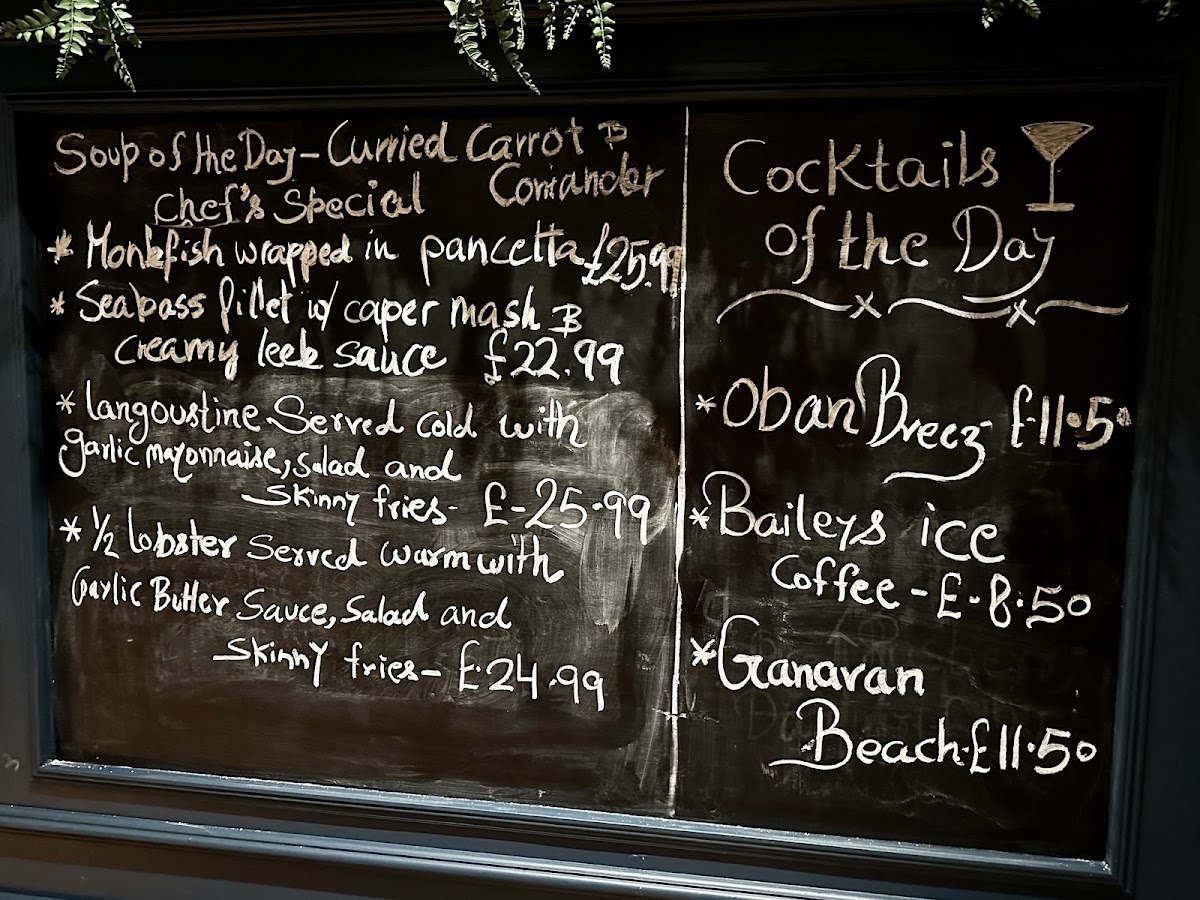 Soup of the Day - Curried Carrot &
Coriander
Chef's Special
* Monkfish wrapped in pancetta £25.99
* Seabass fillet w/ caper mash &
creamy leek sauce £22.99
* langoustine Served cold with
garlic mayonnaise, salad and
skinny fries - £-25.99
* 1/2 lobster Served warm with
Garlic Butter Sauce, Salad and
skinny fries - £.24.99
Cocktails
of the Day
* Oban Breez £11.50
* Baileys ice
Coffee - £-8.50
* Ganavan
Beach.£11.50